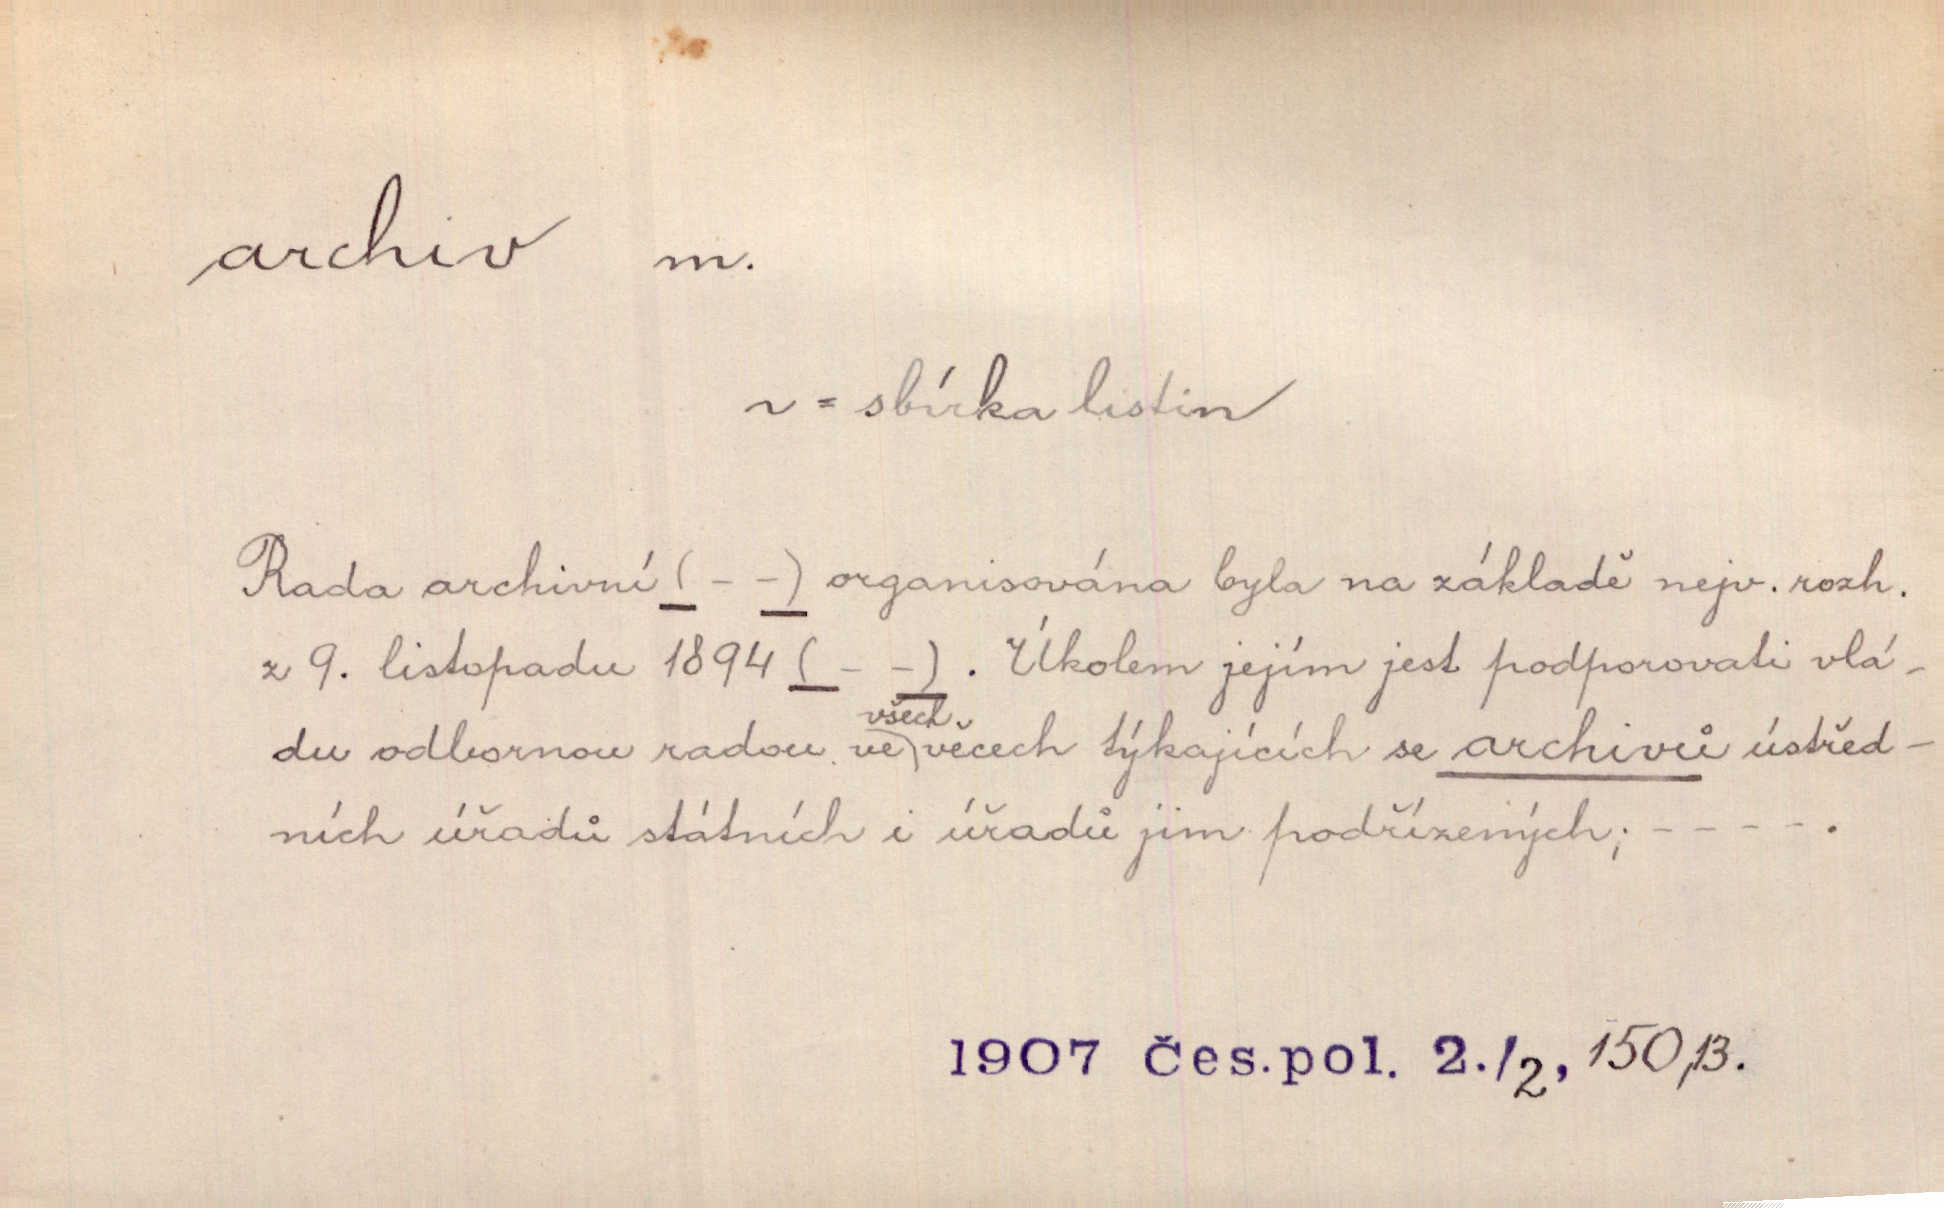 archiv m.
~ = sbírka listin
Rada archivní (- -) organisována byla na základě nejv. rozh.
z 9. listopadu 1894 (- -). Úkolem jejím jest podporovati vlá-
du odbornou radou ve všech věcech týkajících se archivů ústřed-
ních úřadů státních i úřadů jim podřízených; - - - - .
1907 Čes.pol. 2./2, 150,13.